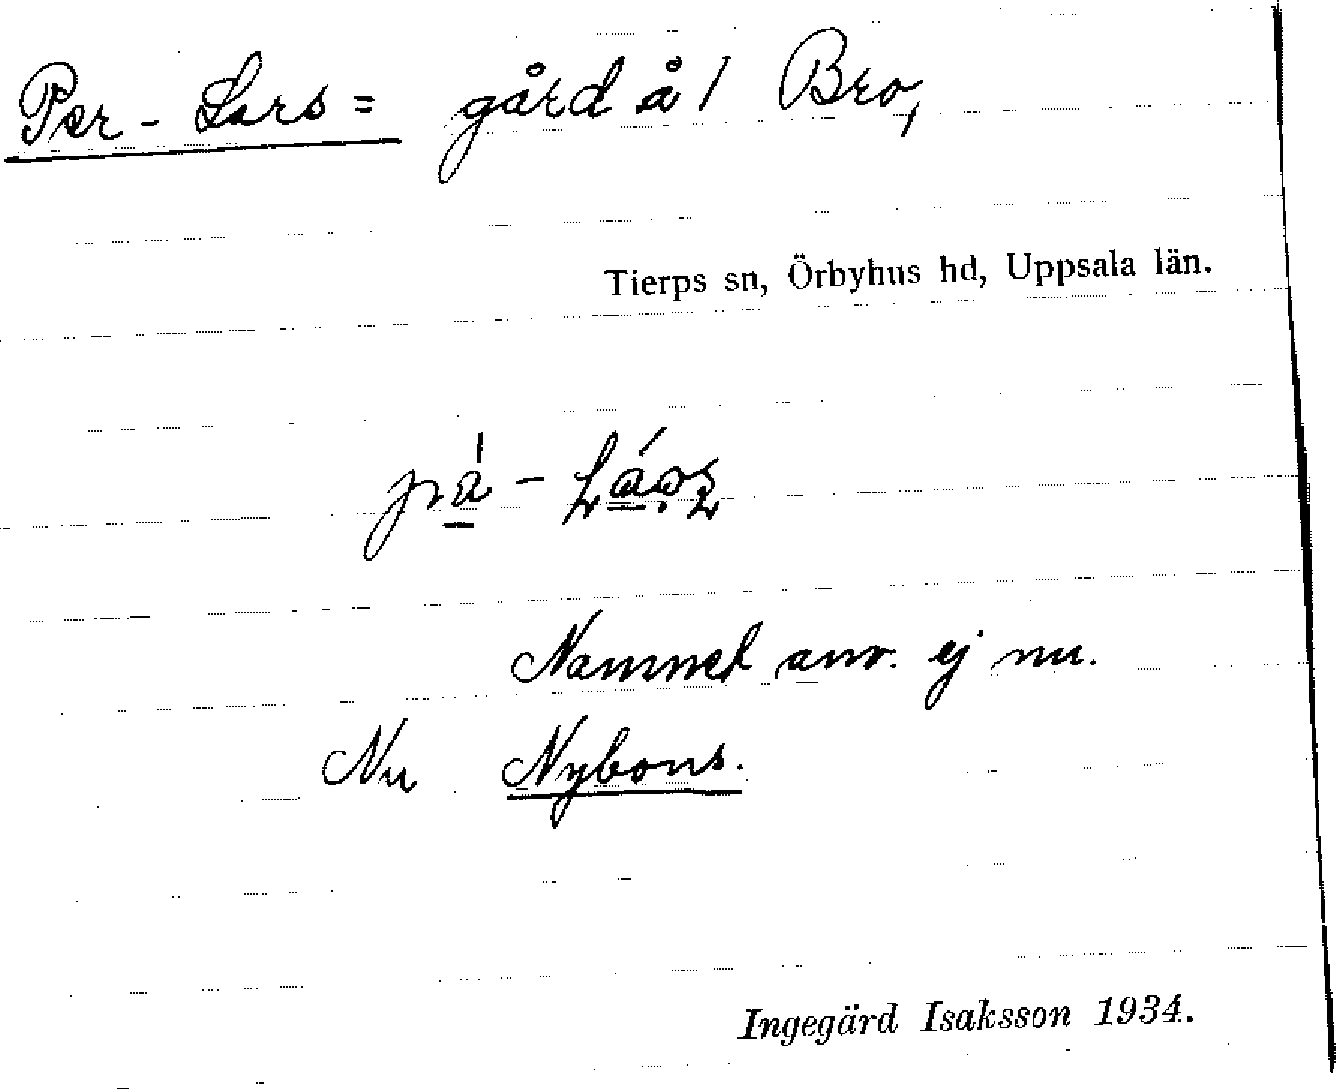 Per-Lars= gård å 1 Bro,
Tierps sn, Örbyhus hd, Uppsala län.
Nammet anv. ej nu.
Nu Nybons.
Ingegärd Isaksson 1934.